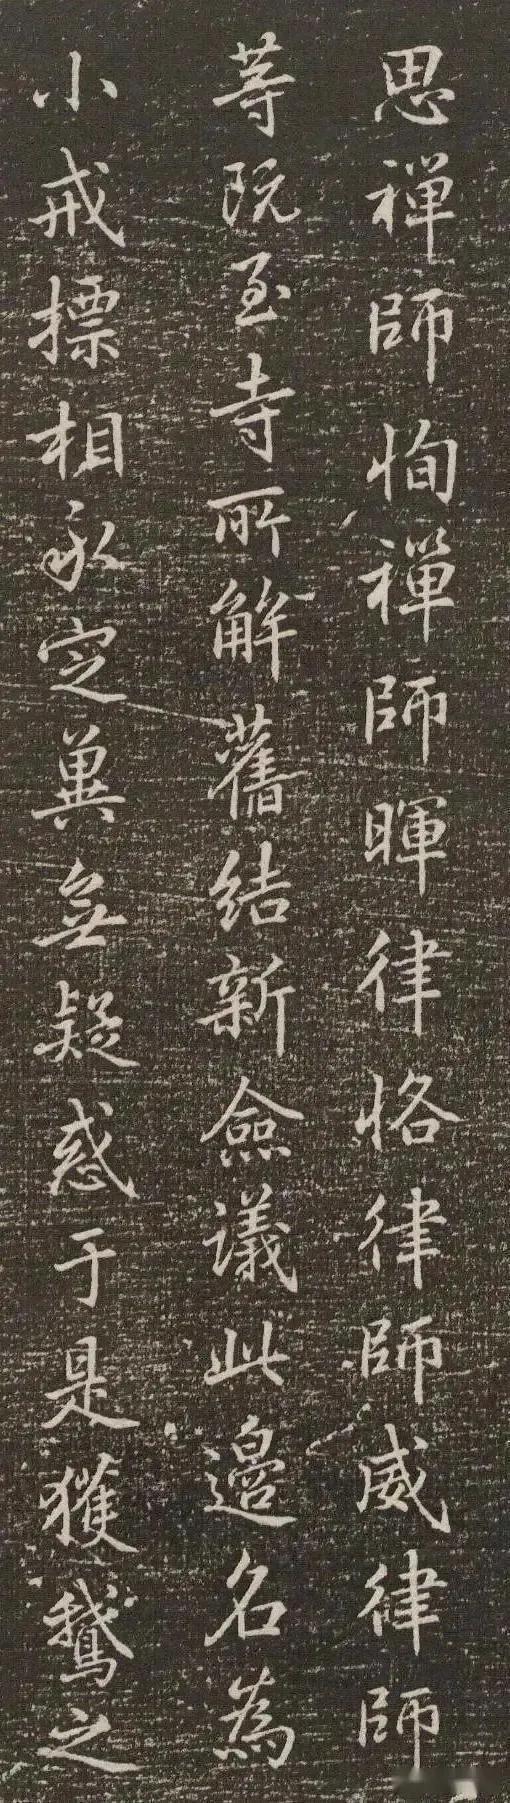 思禅師恂禅師暉律恪律師威律師
等既至寺所解舊結新僉議此邊名為
小戒摽相永定冀無疑惑于是獲鵝之